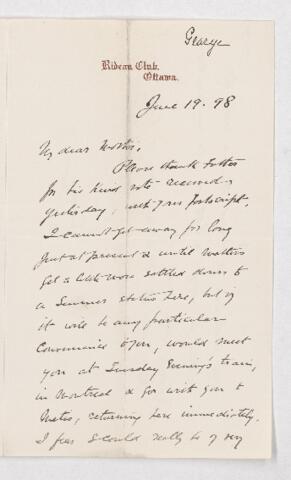 George
Rideau Club,
Ottawa.
June 19. 98
My dear Mother,
Please thank Father
for his kind note received
yesterday, with your postscript.
I cannot get away for long
just at present & until matters
get a little more settled down to
a Summer status here, but if
it will be any particular
convenience to you, would meet
you at Tuesday Evening's train,
in Montreal & go with you to
Metis, returning here immediately.
I fear I could really be of very